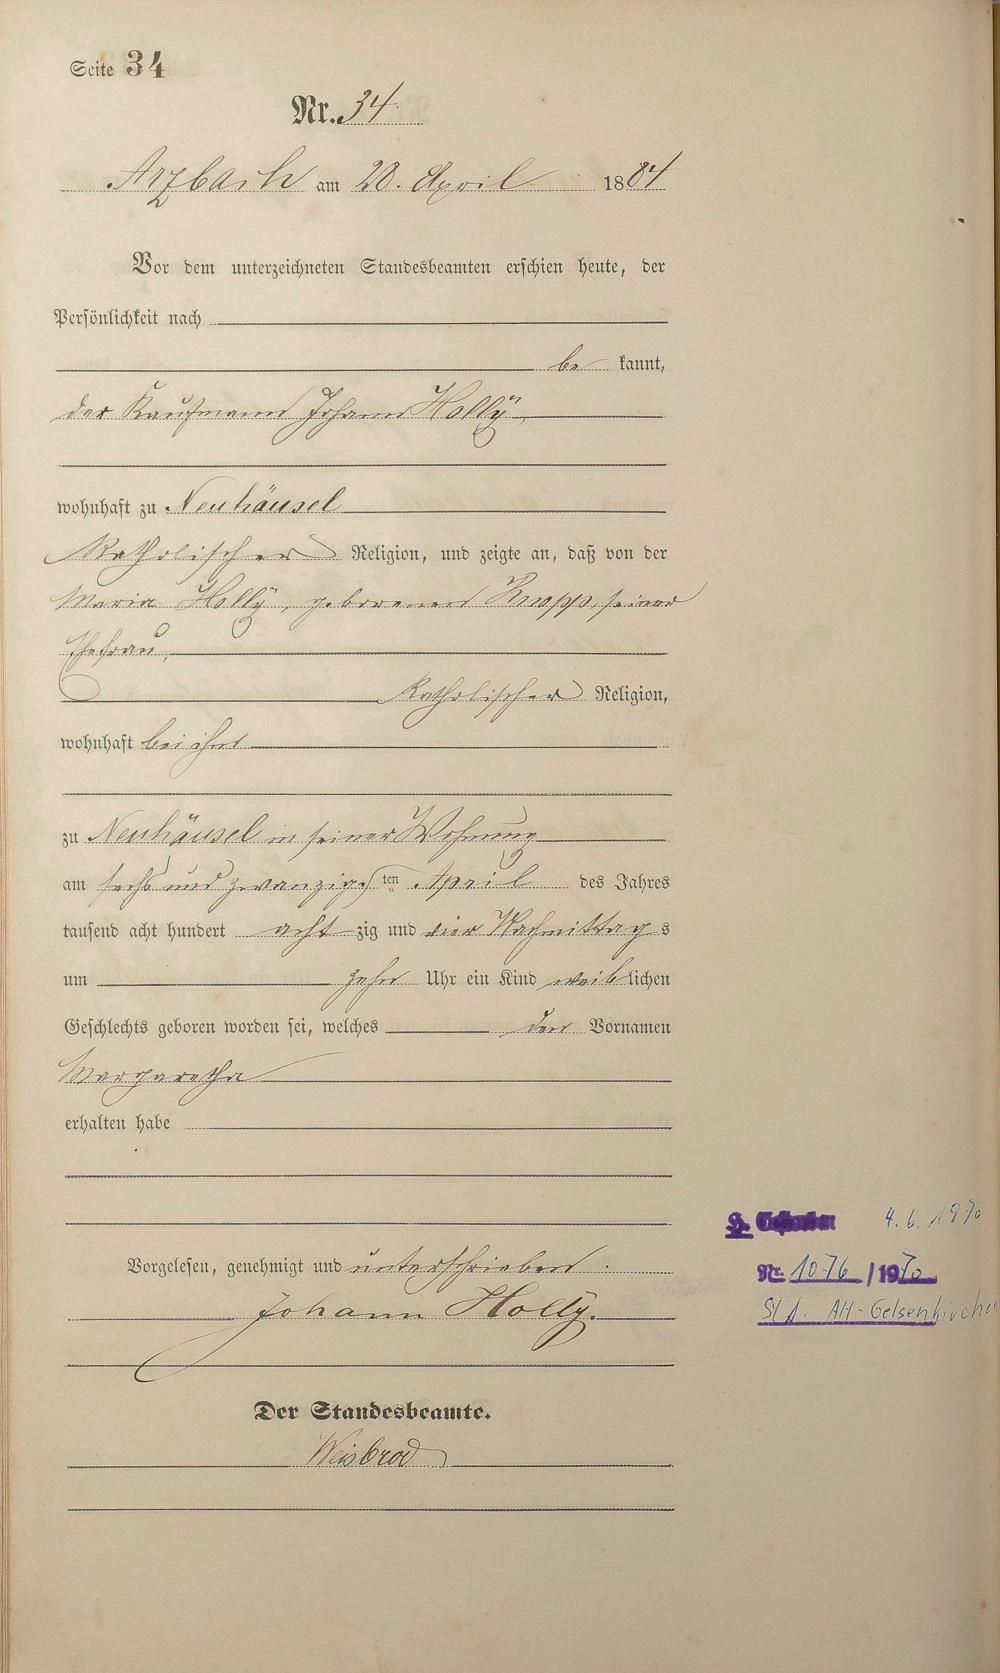 Seite 34
Nr. 34.
Arzbach am 28. April 1884
Vor dem unterzeichneten Standesbeamten erschien heute, der
Persönlichkeit nach
be kannt,
der Kaufmann Johann Hollÿ,
wohnhaft zu Neuhäusel
katholischer Religion, und zeigte an, daß von der
Maria Hollÿ, geborenen Knopp, seiner
Ehefrau,
katholischer Religion,
wohnhaft bei ihm
zu Neuhäusel in seiner Wohnung
am sechs und zwanzig ten April des Jahres
tausend acht hundert acht zig und vier Nachmittag s
um zehn Uhr ein Kind weib lichen
Geschlechts geboren worden sei, welches den Vornamen
Margaretha
erhalten habe
Vorgelesen, genehmigt und unterschrieben.
Johann Holly.
Der Standesbeamte.
Weisbrod
4.6.1970
Nr. 1076 / 1970
AH-Gelsenkirchen